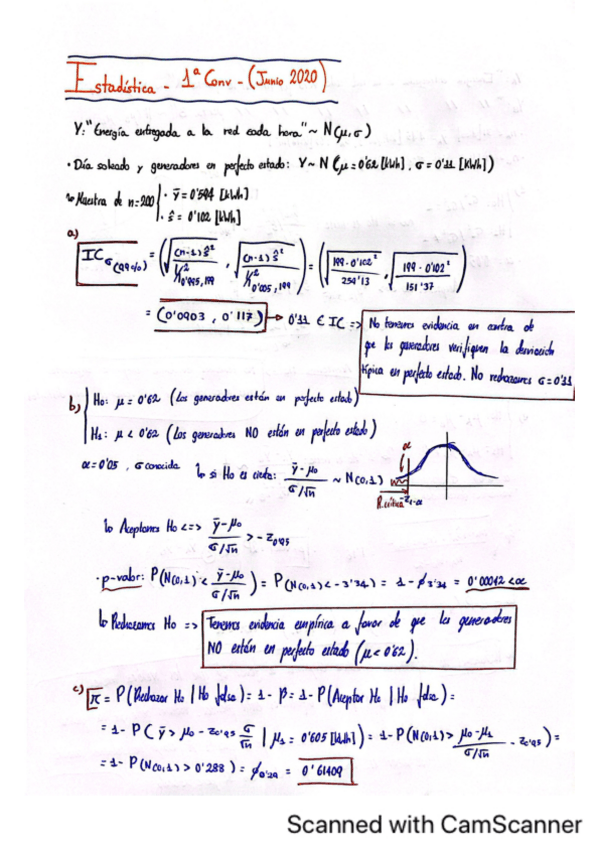 Estadística - 1ª Conv - (Junio 2020)
Y: "Energía entregada a la red cada hora" ~ N(μ, σ)
• Día soleado y generadores en perfecto estado: Y ~ N(μ = 0'62 [kWh], σ = 0'11 [kWh])
↳ Muestra de n=200 { • ȳ = 0'594 [kWh]
• ŝ = 0'102 [kWh]
a)
IC σ(99%) = (√((n-1)ŝ² / χ² 0'995,199), √((n-1)ŝ² / χ² 0'005,199)) = (√(199·0'102² / 254'13), √(199·0'102² / 151'37))
= (0'0903, 0'117) → 0'11 ∈ IC => No tenemos evidencia en contra de
que los generadores verifiquen la desviación
típica en perfecto estado. No rechazamos σ=0'11
b) { H₀: μ = 0'62 (Los generadores están en perfecto estado)
H₁: μ < 0'62 (Los generadores NO están en perfecto estado)
α = 0'05, σ conocida ↳ si H₀ es cierta: (ȳ-μ₀)/(σ/√n) ~ N(0,1)
α
R.crítica -z₁-α
↳ Aceptamos H₀ <=> (ȳ-μ₀)/(σ/√n) > -z₀'₉₅
• p-valor: P(N(0,1) < (ȳ-μ₀)/(σ/√n)) = P(N(0,1) < -3'34) = 1 - ϕ₃'₃₄ = 0'00042 < α
↳ Rechazamos H₀ => Tenemos evidencia empírica a favor de que los generadores
NO están en perfecto estado (μ < 0'62).
c) π = P(Rechazar H₀ | H₀ falsa) = 1 - β = 1 - P(Aceptar H₀ | H₀ falsa) =
= 1 - P(ȳ > μ₀ - z₀'₉₅ σ/√n | μ₁ = 0'605 [kWh]) = 1 - P(N(0,1) > (μ₀-μ₁)/(σ/√n) - z₀'₉₅) =
= 1 - P(N(0,1) > 0'288) = ϕ₀'₂₉ = 0'61409
Scanned with CamScanner